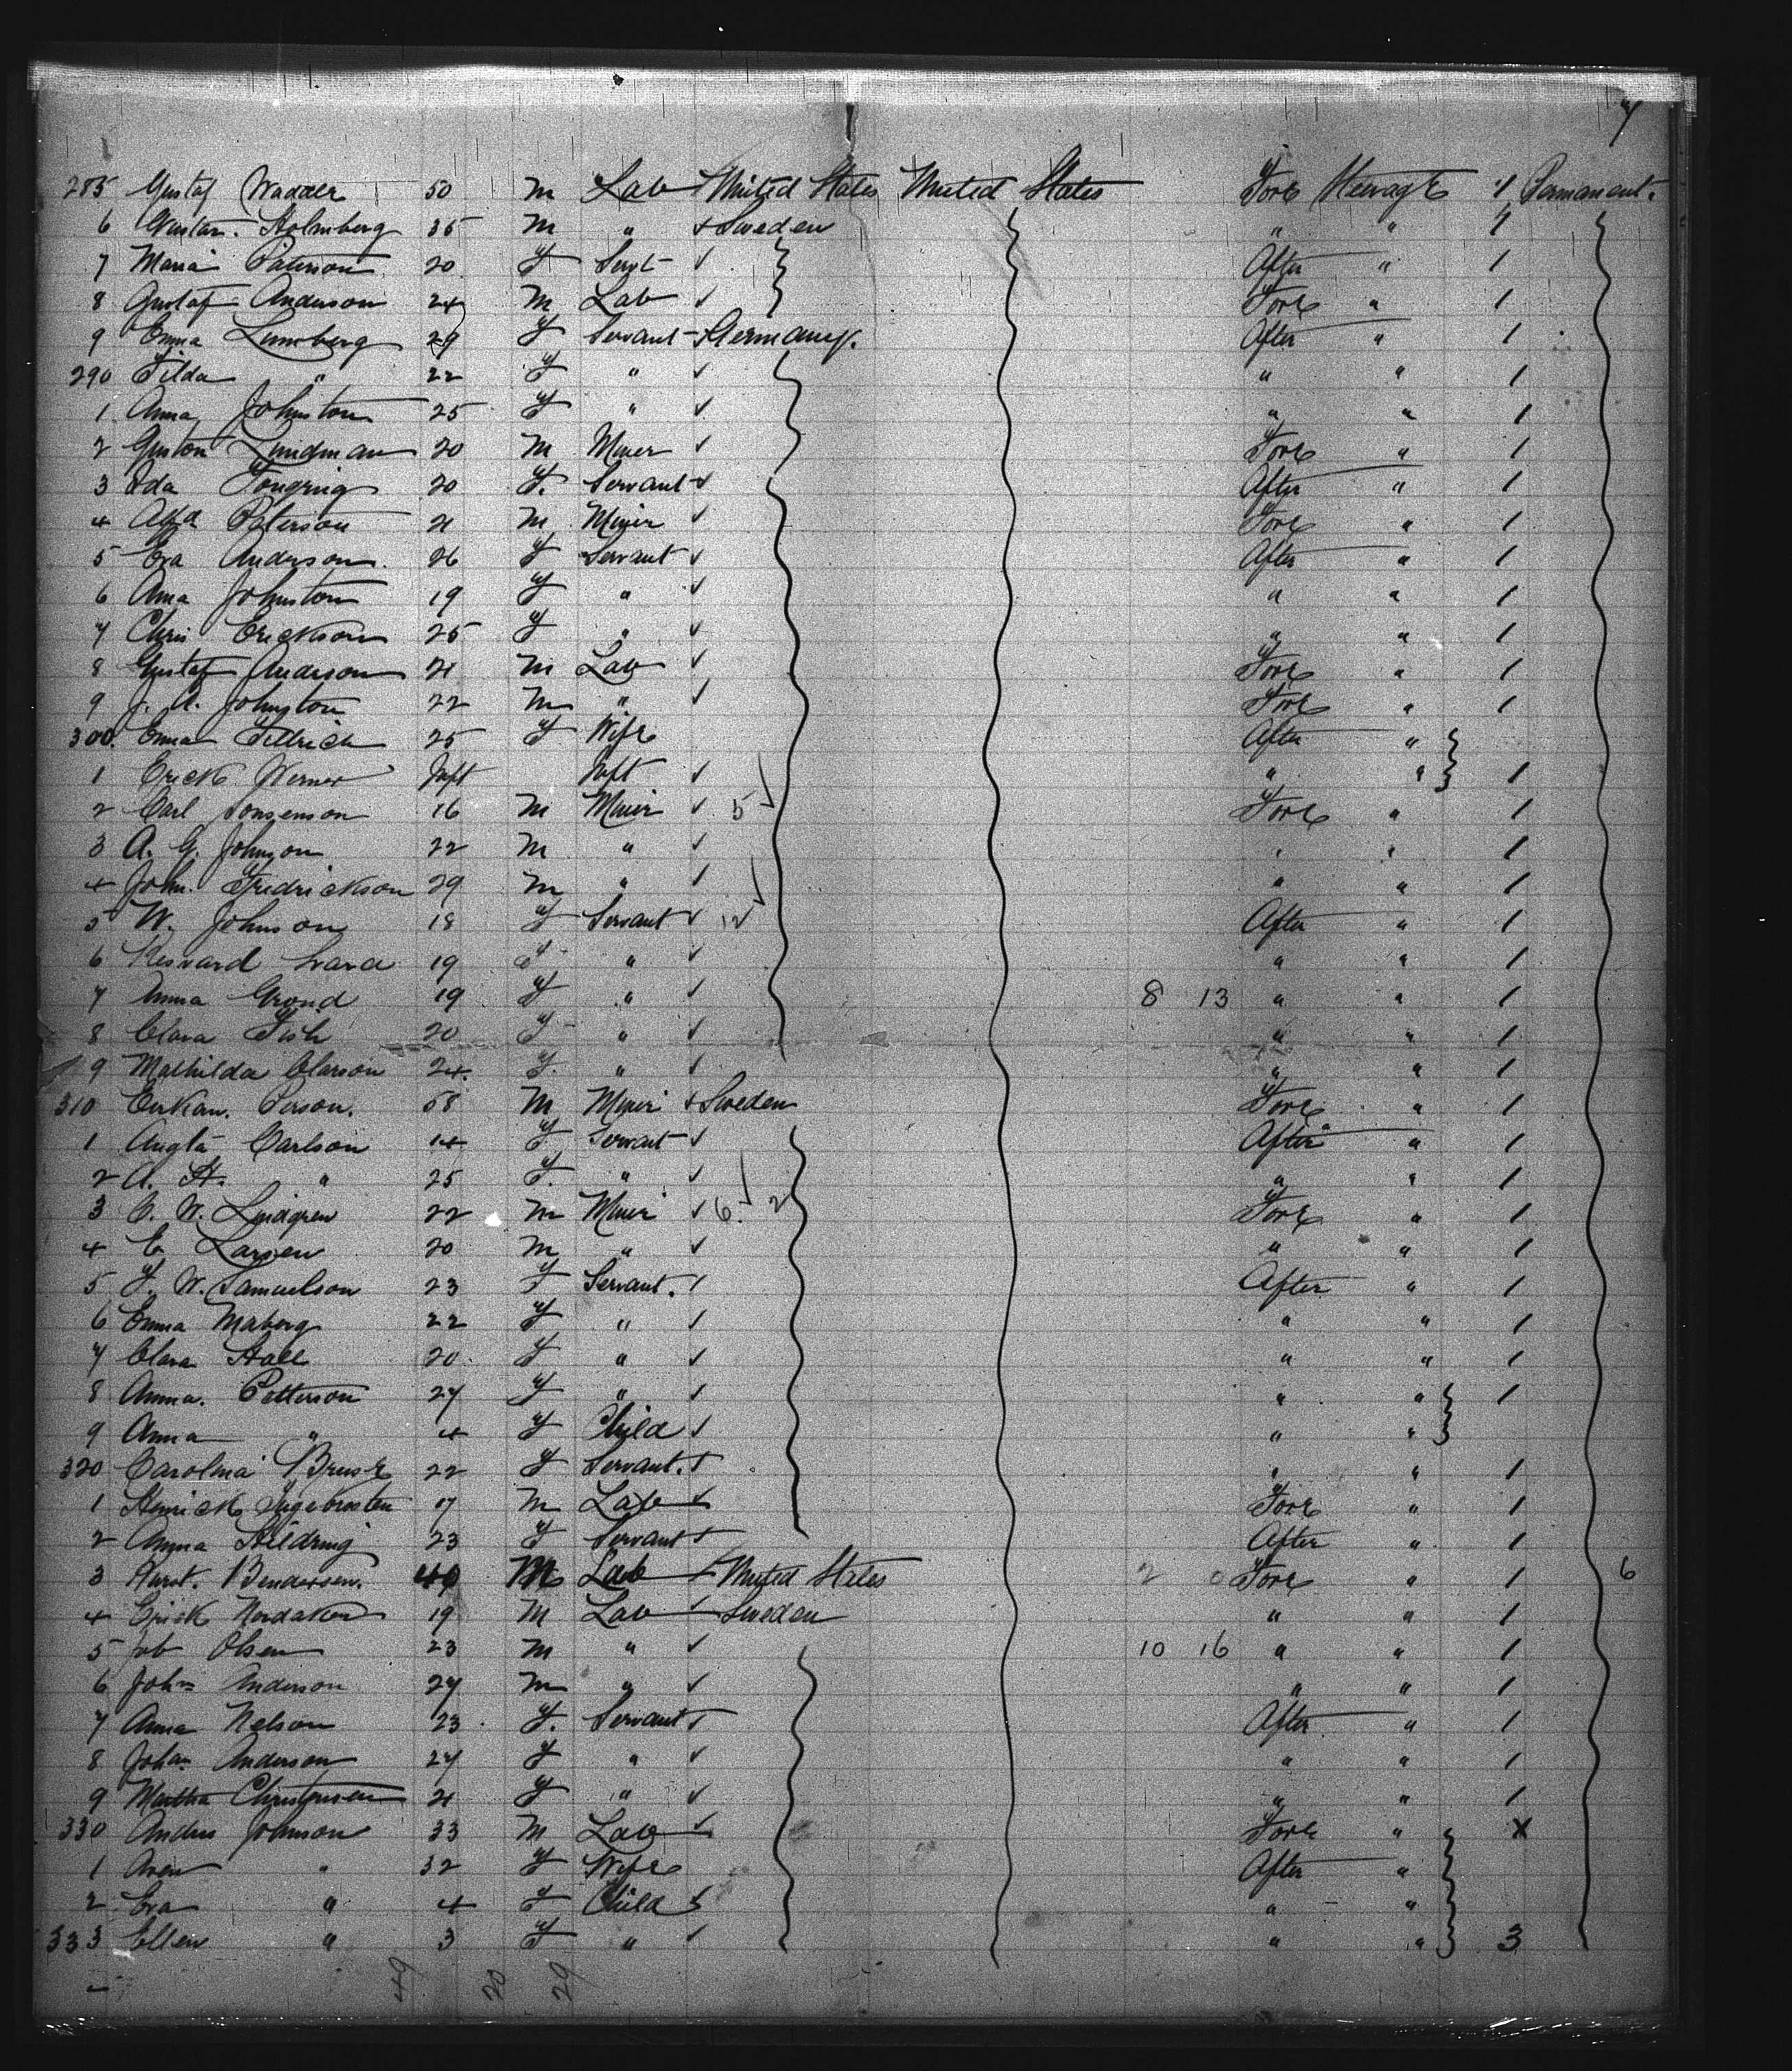 7
285 Gustaf Wadder 50 M Lab United States United States Fore Steerage 1 Permanent.
6 Gustav. Holmberg 35 M " Sweden " " 1
7 Maria Paterson 20 F Servt After " 1
8 Gustaf Anderson 24 M Lab Fore " 1
9 Emma Lumberg 29 F Servant Germany. After " 1
290 Tilda " 22 F " " " 1
1 Anna Johnston 25 F " " " 1
2 Guston Lindman 20 M Miner Fore " 1
3 Ida 20 F. Servant After " 1
4 Paterson 21 M Miner Fore " 1
5 Eva Anderson 26 F Servant After " 1
6 Ama Johnston 19 F " " " 1
7 Chris Erickson 25 F " " " 1
8 Gustaf Anderson 21 M Lab Fore " 1
9 J. A. Johnston 22 M " Fore " 1
300. Emma 25 F Wife After "
1 Erick Werner Inft Inft " " 1
2 Carl 16 M Miner 5 Fore " 1
3 A. G. Johnson 22 M " " " 1
4 John. Fredrickson 29 M " " " 1
5 W. Johnson 18 F Servant 12 After " 1
6 19 F " " " 1
7 Anna Grond 19 F " 8 13 " " 1
8 Clara Fish 20 F " " " 1
9 Mathilda Clarson 24. F. " " " 1
310 Person. 58 M Miner Sweden Fore " 1
1 Augta Carlson 14 F Servant After " 1
2 A. H. " 25 F. " " " 1
3 C. W. Lindgren 22 M Miner 6. 2 Fore " 1
4 C Larsen 20 M " " " 1
5 F. W. Samuelson 23 F Servant. After " 1
6 Emma Maberg 22 F " " " 1
7 Clara Hall 20 F " " " 1
8 Anna. Petterson 27 F " " " 1
9 Anna " 4 F Child " "
320 Carolina 22 F Servant. " " 1
1 Henrick Ingebrosten 17 M Lab Fore " 1
2 Anna Hildring 23 F Servant After " 1
3 Bendersen. 40 M Lab United States 2 0 Fore " 1 6
4 Erick Nordaker 19 M Lab Sweden " " 1
5 Job Olsen 23 M " 10 16 " " 1
6 John Anderson 27 M " " " 1
7 Anna Nelson 23 F. Servant After " 1
8 Johan Anderson 27 F " " " 1
9 Martha Christensen 21 F " " " 1
330 Andrs Johnson 33 M Lab Fore " X
1 " 32 F Wife After "
2 Eva " 4 F Child " "
333 Ellen " 3 F " " " 3
49 20 29